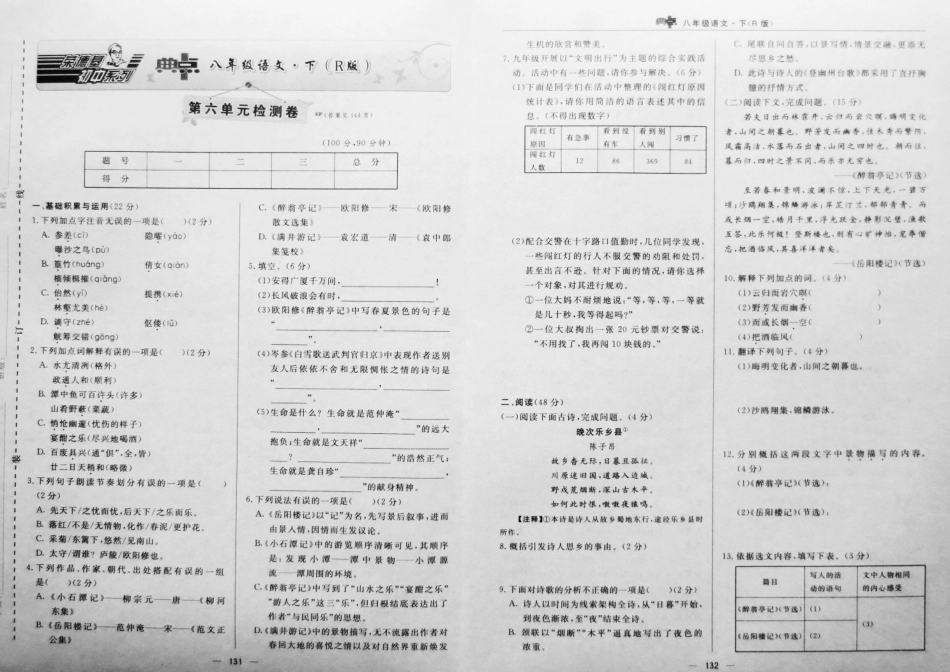 荣德基
初中系列
典点 八年级语文·下(R版)
第六单元检测卷
(100分,90分钟)
题号 一 二 三 总分
得分
一、基础积累与运用(22分)
1.下列加点字注音无误的一项是( )(2分)
A.参差(cī) 隐曜(yáo)
曝沙之鸟(pù)
B.篁竹(huáng) 倩女(qiàn)
C.怡然(yí) 提携(xié)
林壑尤美(hè)
D.谪守(zhé) 伛偻(lǚ)
觥筹交错(gōng)
2.下列加点词解释有误的一项是( )(2分)
A.水尤清冽(格外)
政通人和(顺利)
B.潭中鱼可百许头(许多)
山肴野蔌(菜蔬)
C.悄怆幽邃(忧伤的样子)
宴酣之乐(尽兴地喝酒)
D.百废具兴(通“俱”,全,皆)
廿二日天稍和(略微)
3.下列句子朗读节奏划分有误的一项是( )
(2分)
A.先天下/之忧而忧,后天下/之乐而乐。
B.落红/不是/无情物,化作/春泥/更护花。
C.采菊/东篱下,悠然/见南山。
D.太守/谓谁?庐陵/欧阳修也。
4.下列作品、作家、朝代、出处搭配有误的一组
是( )(2分)
A.《小石潭记》——柳宗元——唐——《柳河
东集》
B.《岳阳楼记》——范仲淹——宋——《范文正
公集》
C.《醉翁亭记》——欧阳修——宋——《欧阳修
散文选集》
D.《满井游记》——袁宏道——清——《袁中郎
集笺校》
5.填空。(6分)
(1)安得广厦千万间,!
(2)长风破浪会有时,。
(3)欧阳修《醉翁亭记》中写春夏景色的句子是
“,”。
(4)岑参《白雪歌送武判官归京》中表现作者送别
友人后依依不舍和无限惆怅之情的诗句是
“,”。
(5)生命是什么?生命就是范仲淹“
,”的远大
抱负;生命就是文天祥“
?”的浩然正气;
生命就是龚自珍“,
”的献身精神。
6.下列说法有误的一项是( )(2分)
A.《岳阳楼记》以“记”为名,先写景后叙事,进而
由景入情,因情而生发议论。
B.《小石潭记》中的游览顺序清晰可见,其顺序
是:发现小潭——潭中景物——小潭源
流——潭周围的环境。
C.《醉翁亭记》中写到了“山水之乐”“宴酣之乐”
“游人之乐”这三“乐”,但归根结底表达出了
作者“与民同乐”的思想。
D.《满井游记》中的景物描写,无不流露出作者对
春回大地的喜悦之情以及对自然界重新焕发
— 131 —
典点 八年级语文·下(R版)
生机的欣赏和赞美。
7.九年级开展以“文明出行”为主题的综合实践活
动。活动中有一些问题,请你参与解决。(6分)
(1)下面是同学们在活动中整理的《闯红灯原因
统计表》,请你用简洁的语言表述其中的信
息。(不得出现数字)
闯红灯原因 有急事 看到没有车 看到别人闯 习惯了
闯红灯人数 12 86 369 84
(2)配合交警在十字路口值勤时,几位同学发现,
一些闯红灯的行人不服交警的劝阻和处罚,
甚至出言不逊。针对下面的情况,请你选择
一个对象,对其进行规劝。
①一位大妈不耐烦地说:“等,等,等,一等就
是几十秒,我等得起吗?”
②一位大叔掏出一张20元钞票对交警说:
“不用找了,我再闯10块钱的。”
二、阅读(48分)
(一)阅读下面古诗,完成问题。(4分)
晚次乐乡县①
陈子昂
故乡杳无际,日暮且孤征。
川原迷旧国,道路入边城。
野戍荒烟断,深山古木平。
如何此时恨,噭噭夜猿鸣。
【注释】①本诗是诗人从故乡蜀地东行,途经乐乡县时
所作。
8.概括引发诗人思乡的事由。(2分)
9.下面对诗歌的分析不正确的一项是( )(2分)
A.诗人以时间为线索架构全诗,从“日暮”开始,
到夜色渐浓,至“夜”结束全诗。
B.颈联以“烟断”“木平”逼真地写出了夜色的
浓重。
C.尾联自问自答,以景写情,情景交融,更添无
尽思乡之愁。
D.此诗与诗人的《登幽州台歌》都采用了直抒胸
臆的抒情方式。
(二)阅读下文,完成问题。(15分)
若夫日出而林霏开,云归而岩穴暝,晦明变化
者,山间之朝暮也。野芳发而幽香,佳木秀而繁阴,
风霜高洁,水落而石出者,山间之四时也。朝而往,
暮而归,四时之景不同,而乐亦无穷也。
——《醉翁亭记》(节选)
至若春和景明,波澜不惊,上下天光,一碧万
顷;沙鸥翔集,锦鳞游泳;岸芷汀兰,郁郁青青。而
或长烟一空,皓月千里,浮光跃金,静影沉璧,渔歌
互答,此乐何极!登斯楼也,则有心旷神怡,宠辱偕
忘,把酒临风,其喜洋洋者矣。
——《岳阳楼记》(节选)
10.解释下列加点的词。(4分)
(1)云归而岩穴暝( )
(2)野芳发而幽香( )
(3)而或长烟一空( )
(4)把酒临风( )
11.翻译下列句子。(4分)
(1)晦明变化者,山间之朝暮也。
(2)沙鸥翔集,锦鳞游泳。
12.分别概括这两段文字中景物描写的内容。
(4分)
(1)《醉翁亭记》(节选):
(2)《岳阳楼记》(节选):
13.依据选文内容,填写下表。(3分)
篇目 写人的活动的语句 文中人物相同的内心感受
《醉翁亭记》(节选) (1) (3)
《岳阳楼记》(节选) (2)
— 132 —